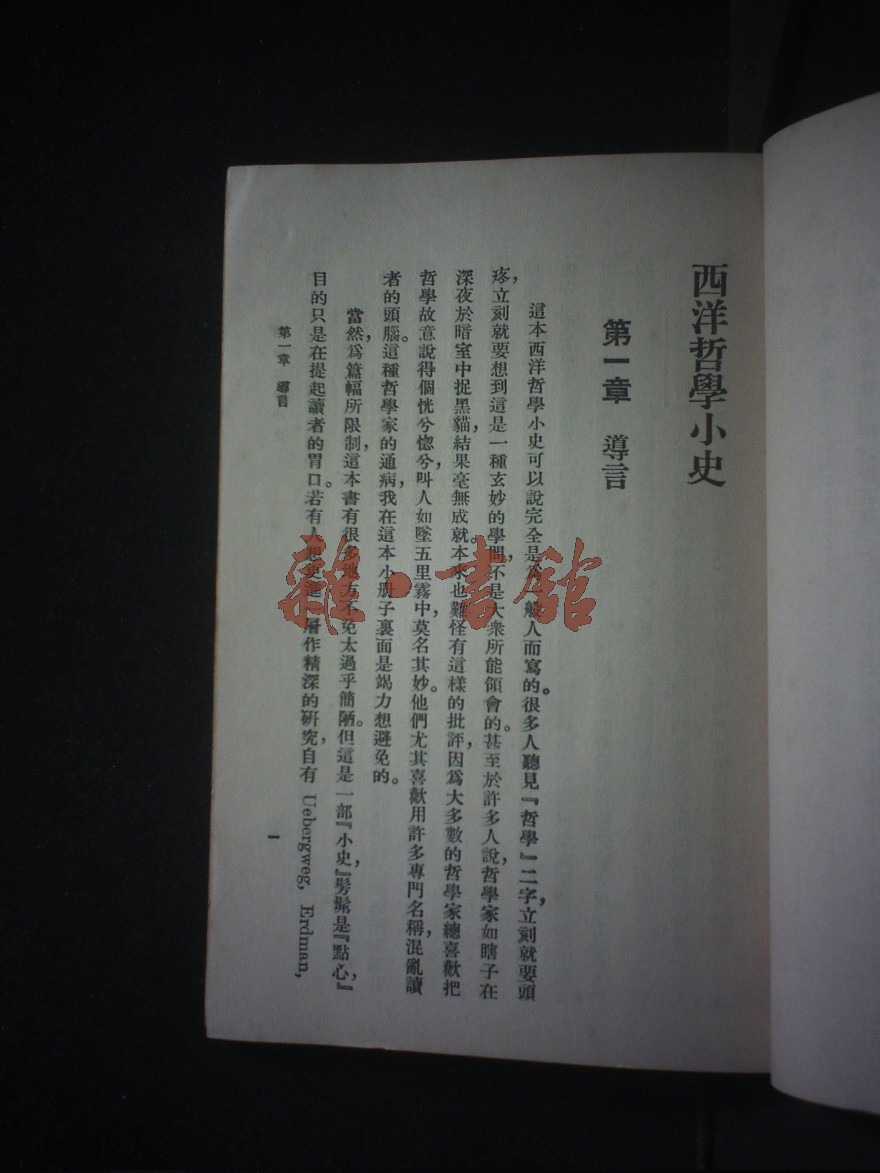 西洋哲學小史
第一章 導言
這本西洋哲學小史可以說完全是爲一般人而寫的。很多人聽見『哲學』二字，立刻就要頭
疼，立刻就要想到這是一種玄妙的學問，不是大衆所能領會的。甚至於許多人說，哲學家如瞎子在
深夜於暗室中捉黑貓，結果毫無成就。本來也難怪有這樣的批評，因爲大多數的哲學家總喜歡把
哲學故意說得個恍兮惚兮，叫人如墜五里霧中，莫名其妙。他們尤其喜歡用許多專門名稱，混亂讀
者的頭腦。這種哲學家的通病，我在這本小册子裏面是竭力想避免的。
當然，爲篇幅所限制，這本書有很多地方不免太過乎簡陋。但這是一部『小史，』髣髴是『點心，』
目的只是在提起讀者的胃口。若有人想更進一層作精深的研究，自有 Uebergweg, Erdman,
第一章 導言
一
雜·書館